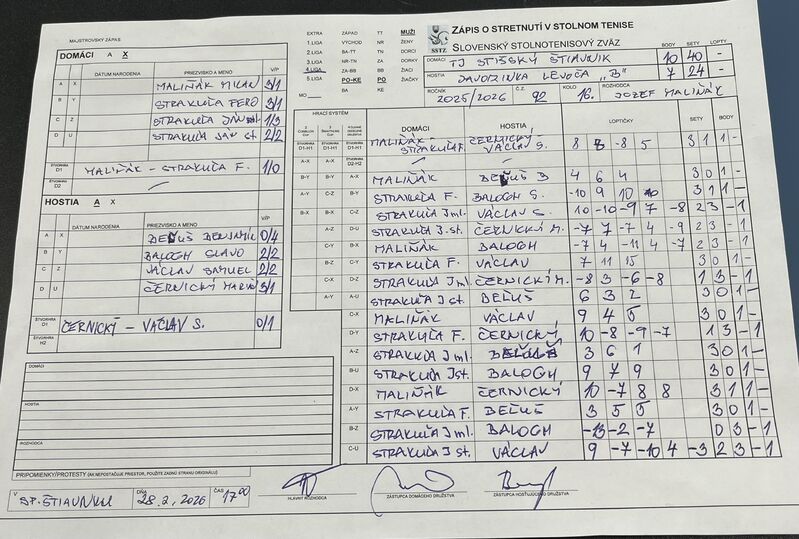 MAJSTROVSKÝ ZÁPAS
EXTRA ZÁPAD TT MUŽI
1.LIGA VÝCHOD NR ŽENY
2.LIGA BA TN DORCI
3.LIGA NR-TN ZA DORKY
4.LIGA ZA-BB BB ŽIACI
5.LIGA PO-KE PO ŽIAČKY
MO BA KE
SSTZ
ZÁPIS O STRETNUTÍ V STOLNOM TENISE
SLOVENSKÝ STOLNOTENISOVÝ ZVÄZ
BODY SETY LOPTY
DOMÁCI TJ SPIŠSKÝ ŠTIAVNIK 10 40
HOSTIA JAVORINKA LEVOČA „B" 7 24
ROČNÍK 2025/2026 Č.Z. 92 KOLO 16. ROZHODCA JOZEF MALIŇÁK
DOMÁCI A X
DÁTUM NARODENIA PRIEZVISKO A MENO V/P
A X MALIŇÁK MILAN 3/1
B Y STRAKUĽA FERO 3/1
C Z STRAKUĽA JÁN ml. 1/3
D U STRAKUĽA JÁN st. 2/2
ŠTVORHRA D1 MALIŇÁK - STRAKUĽA F. 1/0
D2
HOSTIA A X
DÁTUM NARODENIA PRIEZVISKO A MENO V/P
A X BEŇUŠ BENJAMIL 0/4
B Y BALOGH SLAVO 2/2
C Z VÁCLAV SAMUEL 2/2
D U ČERNICKÝ MAREK 3/1
ŠTVORHRA D1 ČERNICKÝ - VÁCLAV S. 0/1
ŠTVORHRA H2
DOMÁCI
HOSTIA
ROZHODCA
PRIPOMIENKY/PROTESTY (AK NEPOSTAČUJE PRIESTOR, POUŽITE ZADNÚ STRANU ORIGINÁLU)
HRACÍ SYSTÉM
DOMÁCI HOSTIA LOPTIČKY SETY BODY
D1-H1 D1-H1 D1-H1 MALIŇÁK - STRAKUĽA F. ČERNICKÝ - VÁCLAV S. 8 8 -8 5 3 1 1 -
A-X D2-H2
B-Y A-Y A-X MALIŇÁK BEŇUŠ B 4 6 4 3 0 1 -
A-Y C-Z B-Y STRAKUĽA F. BALOGH S. -10 9 10 10 3 1 1 -
B-X B-X C-Z STRAKUĽA J ml. VÁCLAV S. 10 -10 -9 7 -8 2 3 - 1
A-Z D-U STRAKUĽA J. st. ČERNICKÝ M. -7 7 -7 4 -9 2 3 - 1
C-Y B-X MALIŇÁK BALOGH -7 4 -11 4 -7 2 3 - 1
B-Z C-Y STRAKUĽA F. VÁCLAV 7 11 15 3 0 1 -
C-X D-Z STRAKUĽA J ml. ČERNICKÝ M. -8 3 -6 -8 1 3 - 1
A-U STRAKUĽA J st. BEŇUŠ 6 3 2 3 0 1 -
C-X MALIŇÁK VÁCLAV 9 4 5 3 0 1 -
D-Y STRAKUĽA F. ČERNICKÝ 10 -8 -9 -7 1 3 - 1
A-Z STRAKUĽA J ml. BEŇUŠ 3 6 1 3 0 1 -
B-U STRAKUĽA J st. BALOGH 9 7 9 3 0 1 -
D-X MALIŇÁK ČERNICKÝ 10 -7 8 8 3 1 1 -
A-Y STRAKUĽA F. BEŇUŠ 3 5 5 3 0 1 -
B-Z STRAKUĽA J ml. BALOGH -13 -2 -7 0 3 - 1
C-U STRAKUĽA J st. VÁCLAV 9 -7 -10 4 -3 2 3 - 1
V SP. ŠTIAVNIKU DŇA 28.2.2026 ČAS 17 00
HLAVNÝ ROZHODCA ZÁSTUPCA DOMÁCEHO DRUŽSTVA ZÁSTUPCA HOSŤUJÚCEHO DRUŽSTVA